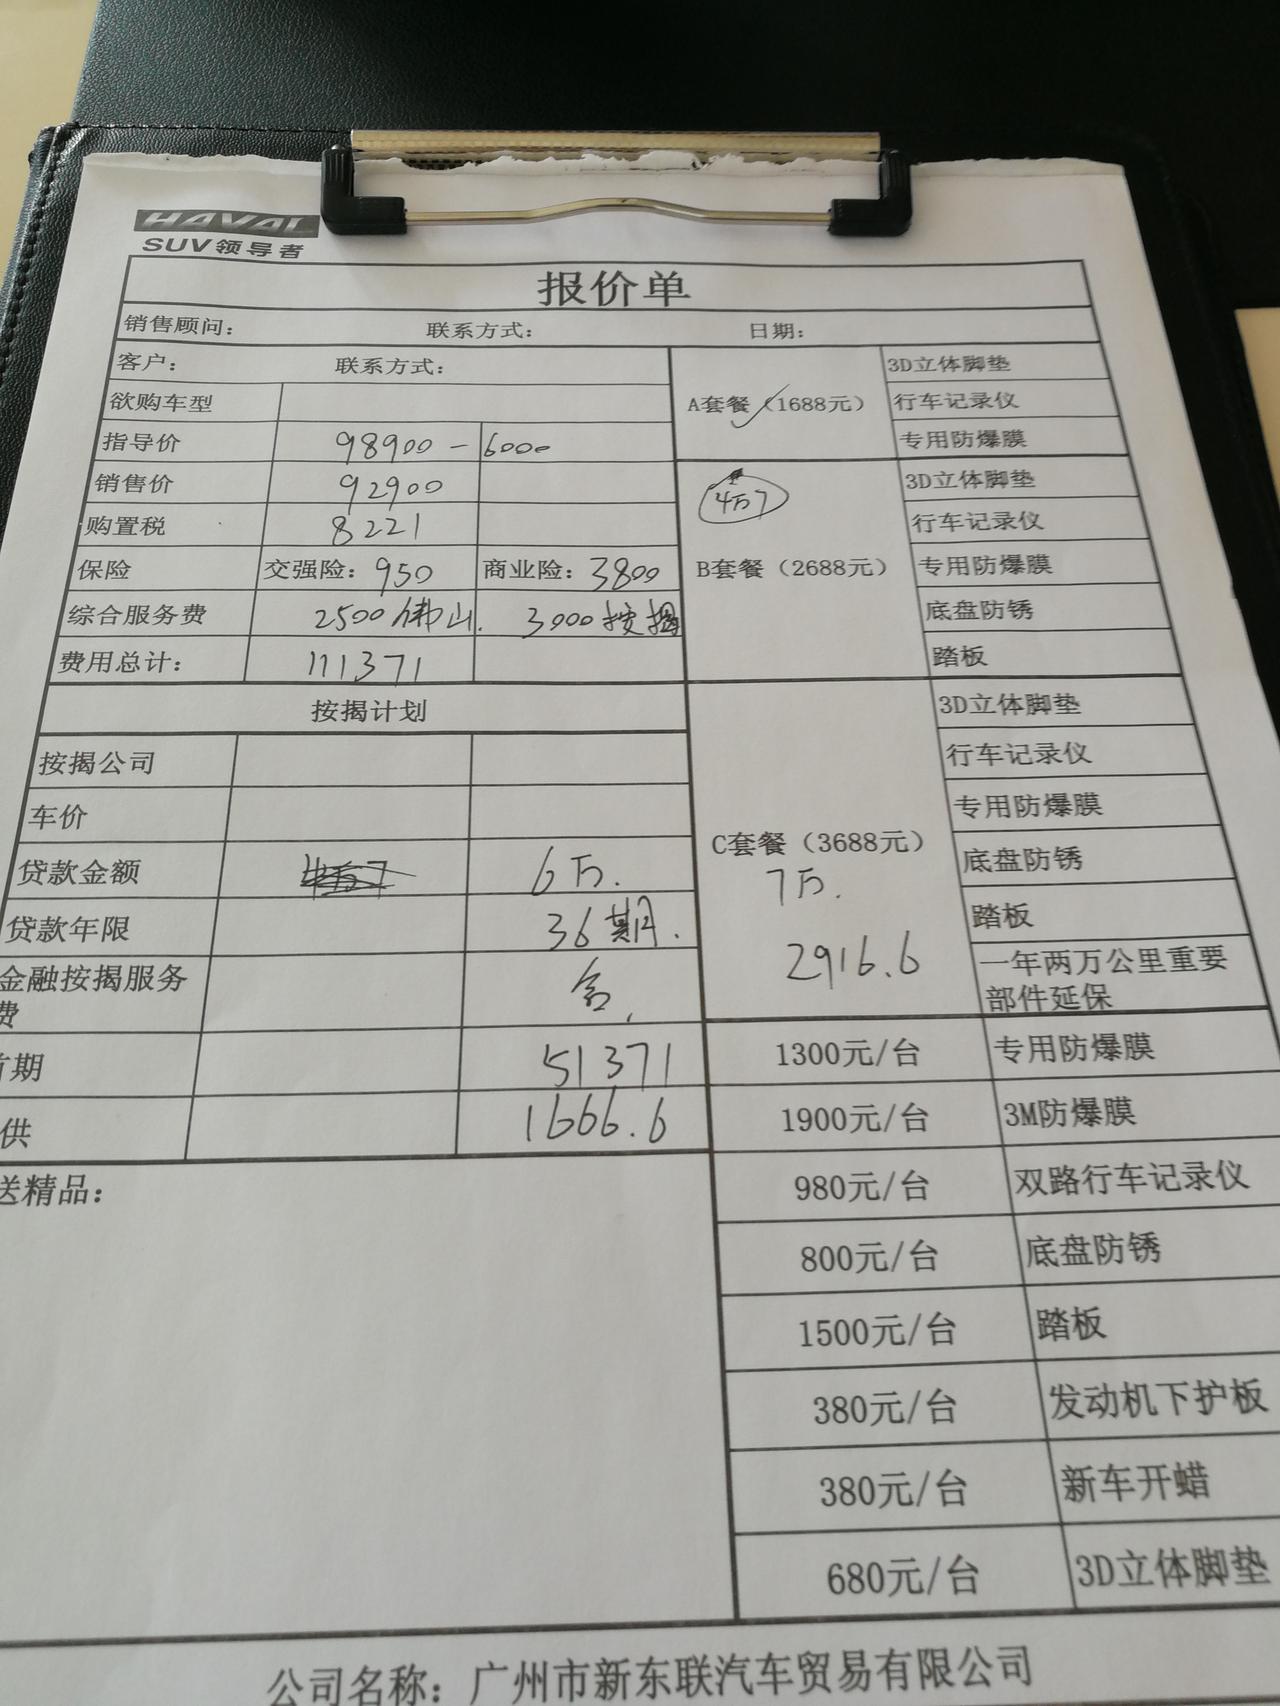 HAVAL
SUV领导者
报价单
销售顾问： 联系方式： 日期：
客户： 联系方式：
欲购车型
指导价 98900 - 6000
销售价 92900
购置税 8221
保险 交强险：950 商业险：3800
综合服务费 2500佛山. 3000按揭
费用总计： 111371
按揭计划
按揭公司
车价
贷款金额 6万.
贷款年限 36期.
金融按揭服务
费 含.
期 51371
供 1666.6
送精品：
A套餐（1688元）
3D立体脚垫
行车记录仪
专用防爆膜
4万7
B套餐（2688元）
3D立体脚垫
行车记录仪
专用防爆膜
底盘防锈
踏板
C套餐（3688元）
7万.
2916.6
3D立体脚垫
行车记录仪
专用防爆膜
底盘防锈
踏板
一年两万公里重要
部件延保
1300元/台 专用防爆膜
1900元/台 3M防爆膜
980元/台 双路行车记录仪
800元/台 底盘防锈
1500元/台 踏板
380元/台 发动机下护板
380元/台 新车开蜡
680元/台 3D立体脚垫
公司名称：广州市新东联汽车贸易有限公司